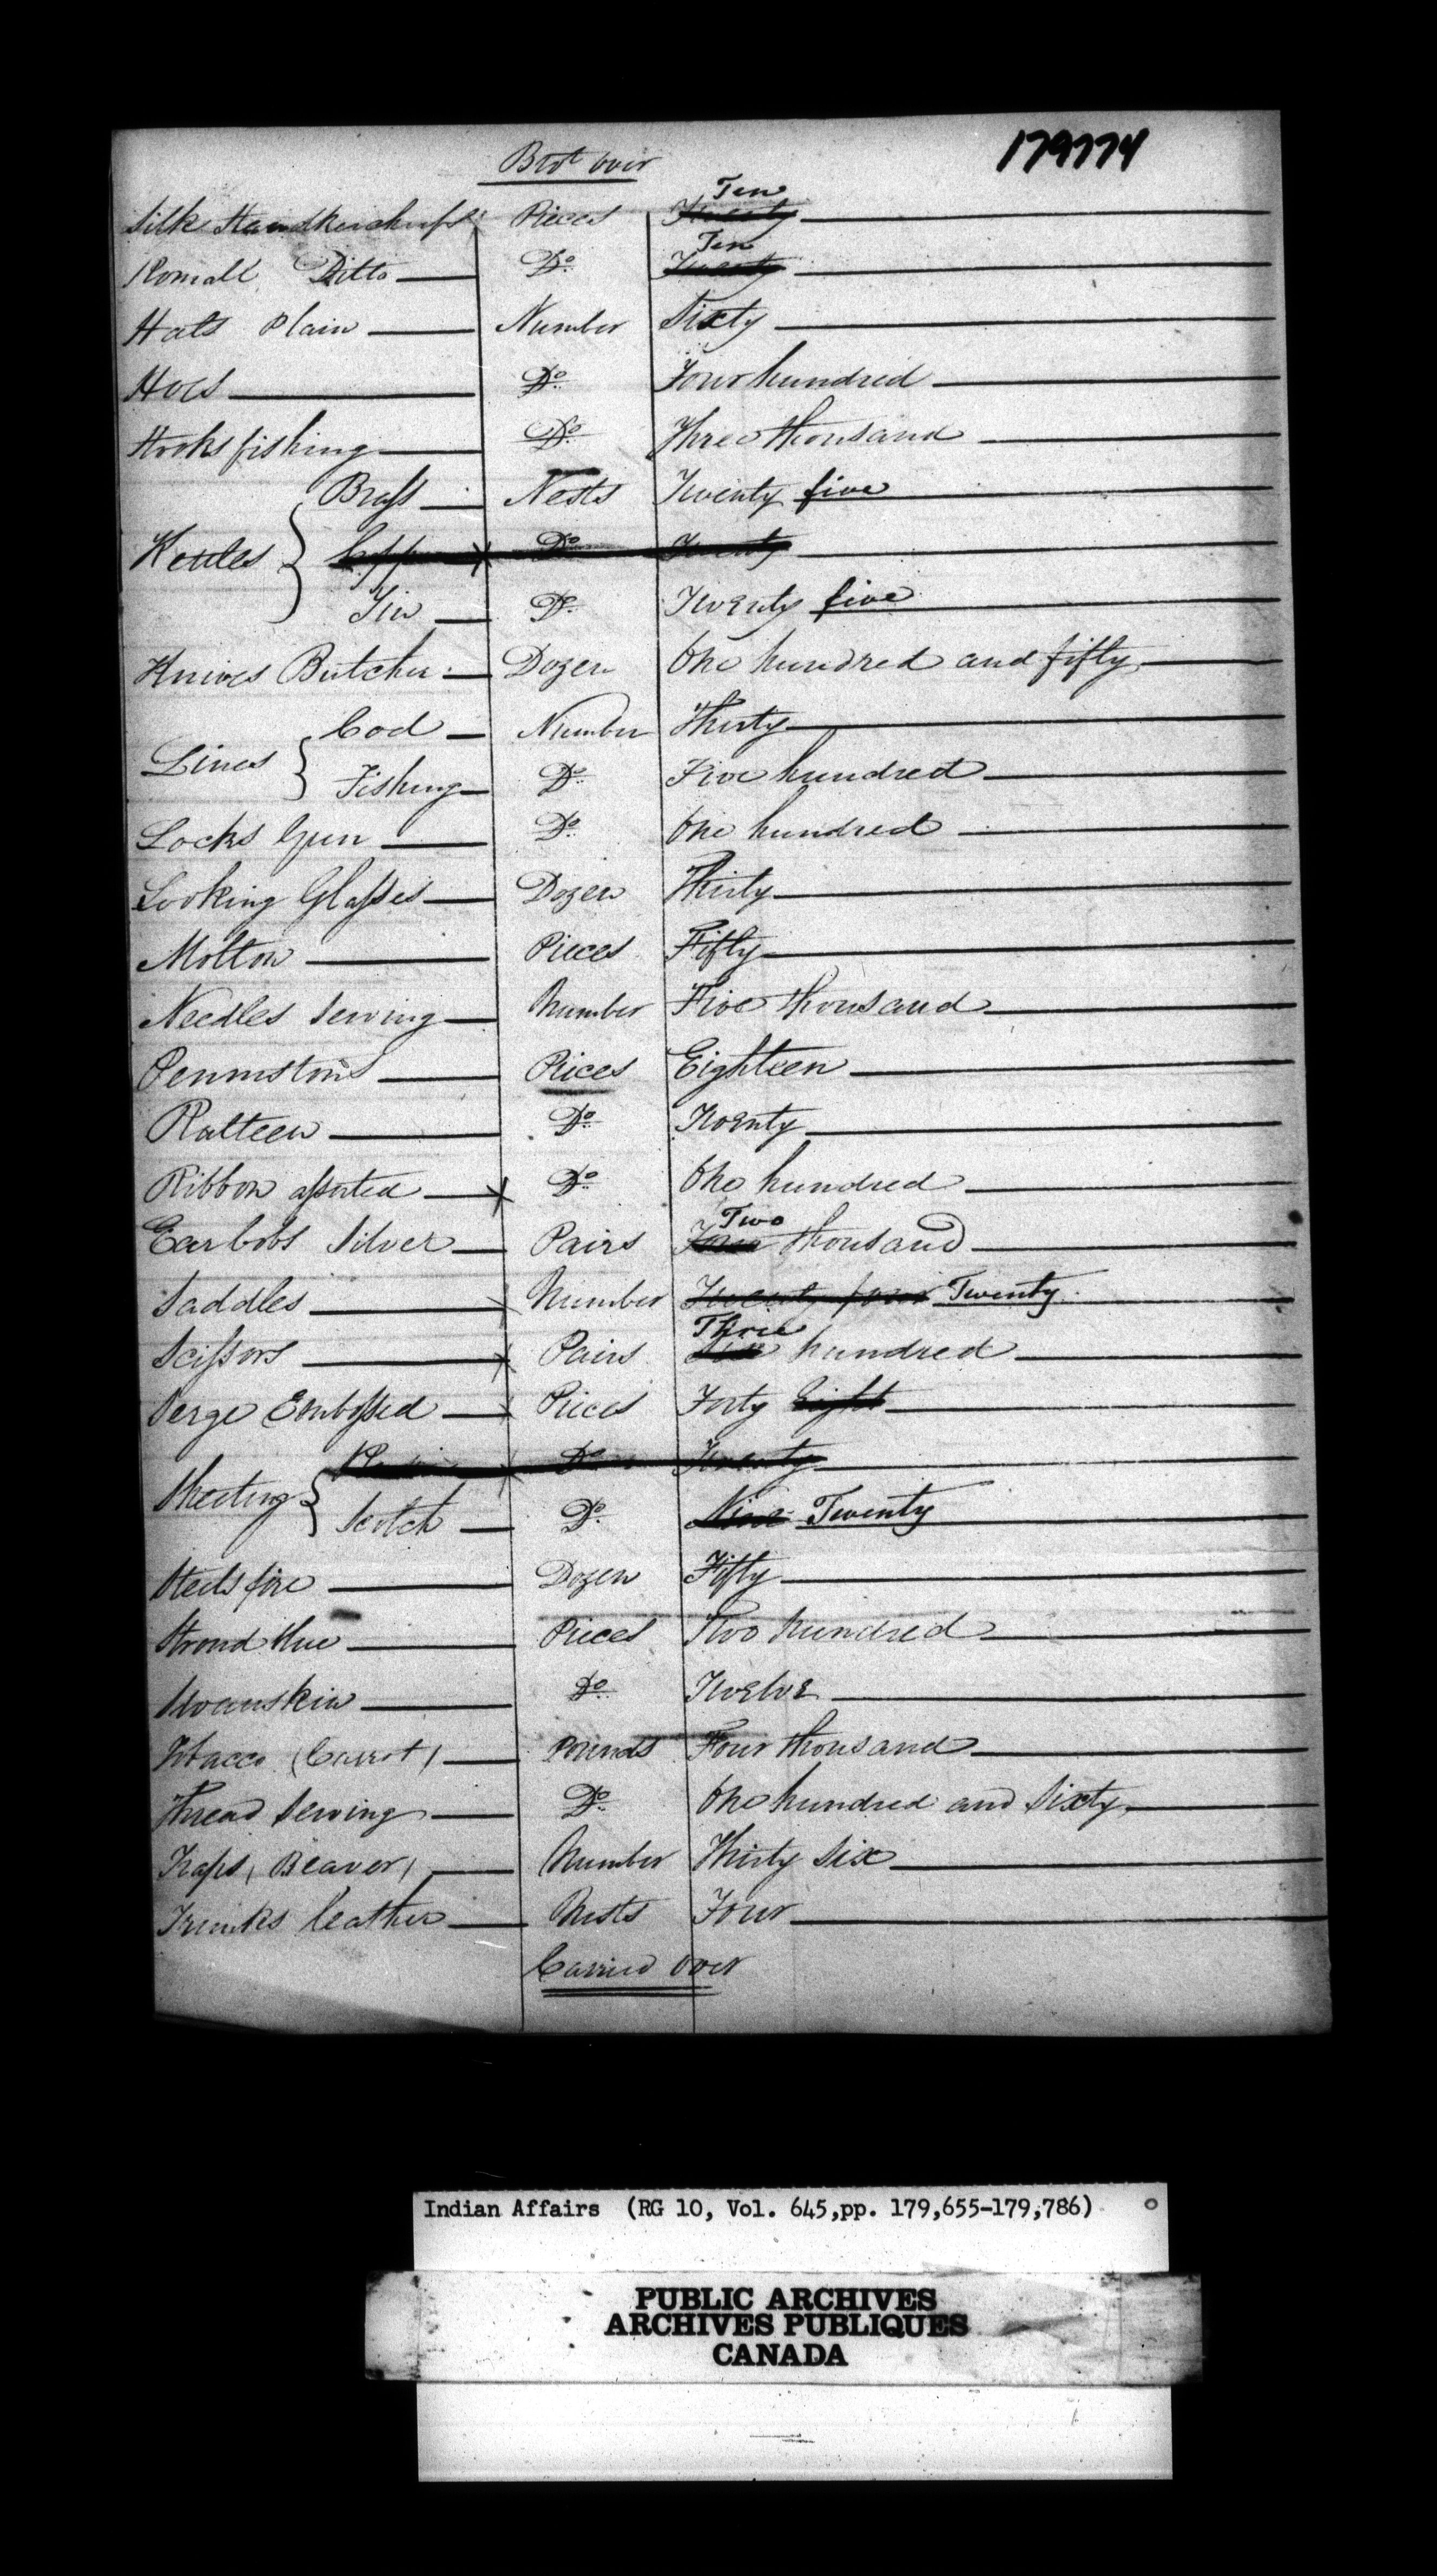 179774
Brot over
Silk Handkerchiefs Pieces Twenty Ten
Romall Ditto Do Twenty Ten
Hats Plain Number Sixty
Hoes Do Four hundred
Hooks fishing Do Three thousand
Kettles { Brass Nests Twenty five
Copper Do Twenty
Tin Do Twenty five
Knives Butcher Dozen One hundred and fifty
Lines { Cod Number Thirty
Fishing Do Five hundred
Locks Gun Do One hundred
Looking Glasses Dozen Thirty
Molton Pieces Fifty
Needles Sewing Number Five thousand
Pennistons Pieces Eighteen
Ratteen Do Twenty
Ribbon assorted Do One hundred
Earbobs Silver Pairs Four Two thousand
Saddles Number Twenty four Twenty
Scissors Pairs Six Three hundred
Serge Embossed Pieces Forty Eight
Sheeting { Do Twenty
Scotch Do Nine Twenty
Steels fire Dozen Fifty
Stroud blue Pieces Two hundred
Swanskin Do Twelve
Tobacco (Carrot) Pounds Four thousand
Thread Sewing Do One hundred and Sixty
Traps (Beaver) Number Thirty Six
Trunks leather Nests Four
Carried over
Indian Affairs (RG 10, Vol. 645,pp. 179,655-179,786)
PUBLIC ARCHIVES
ARCHIVES PUBLIQUES
CANADA